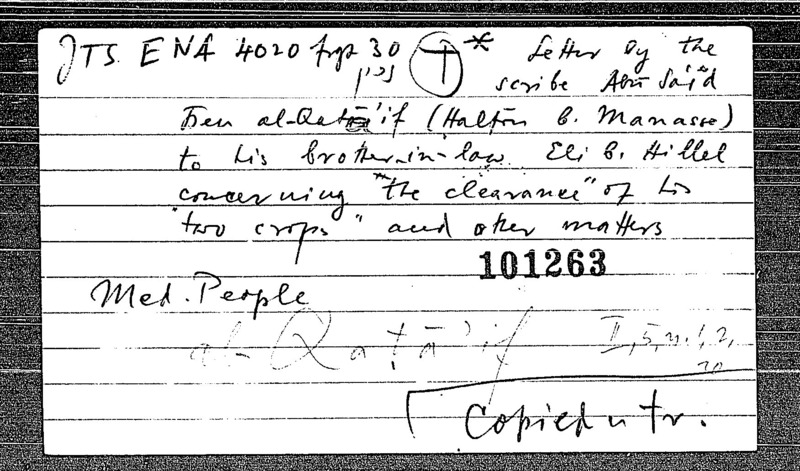 JTS ENA 4020 frgt 30 T * Letter by the
scribe Abū Sa'īd
Ben al-Qaṭā'if (Halfon b. Manasse)
to his brother-in-law Eli b. Hillel
concerning "the clearance" of his
"two crops" and other matters
101263
Med. People
al-Qaṭā'if II, 5, n. 1, 2,
Copied u tr.